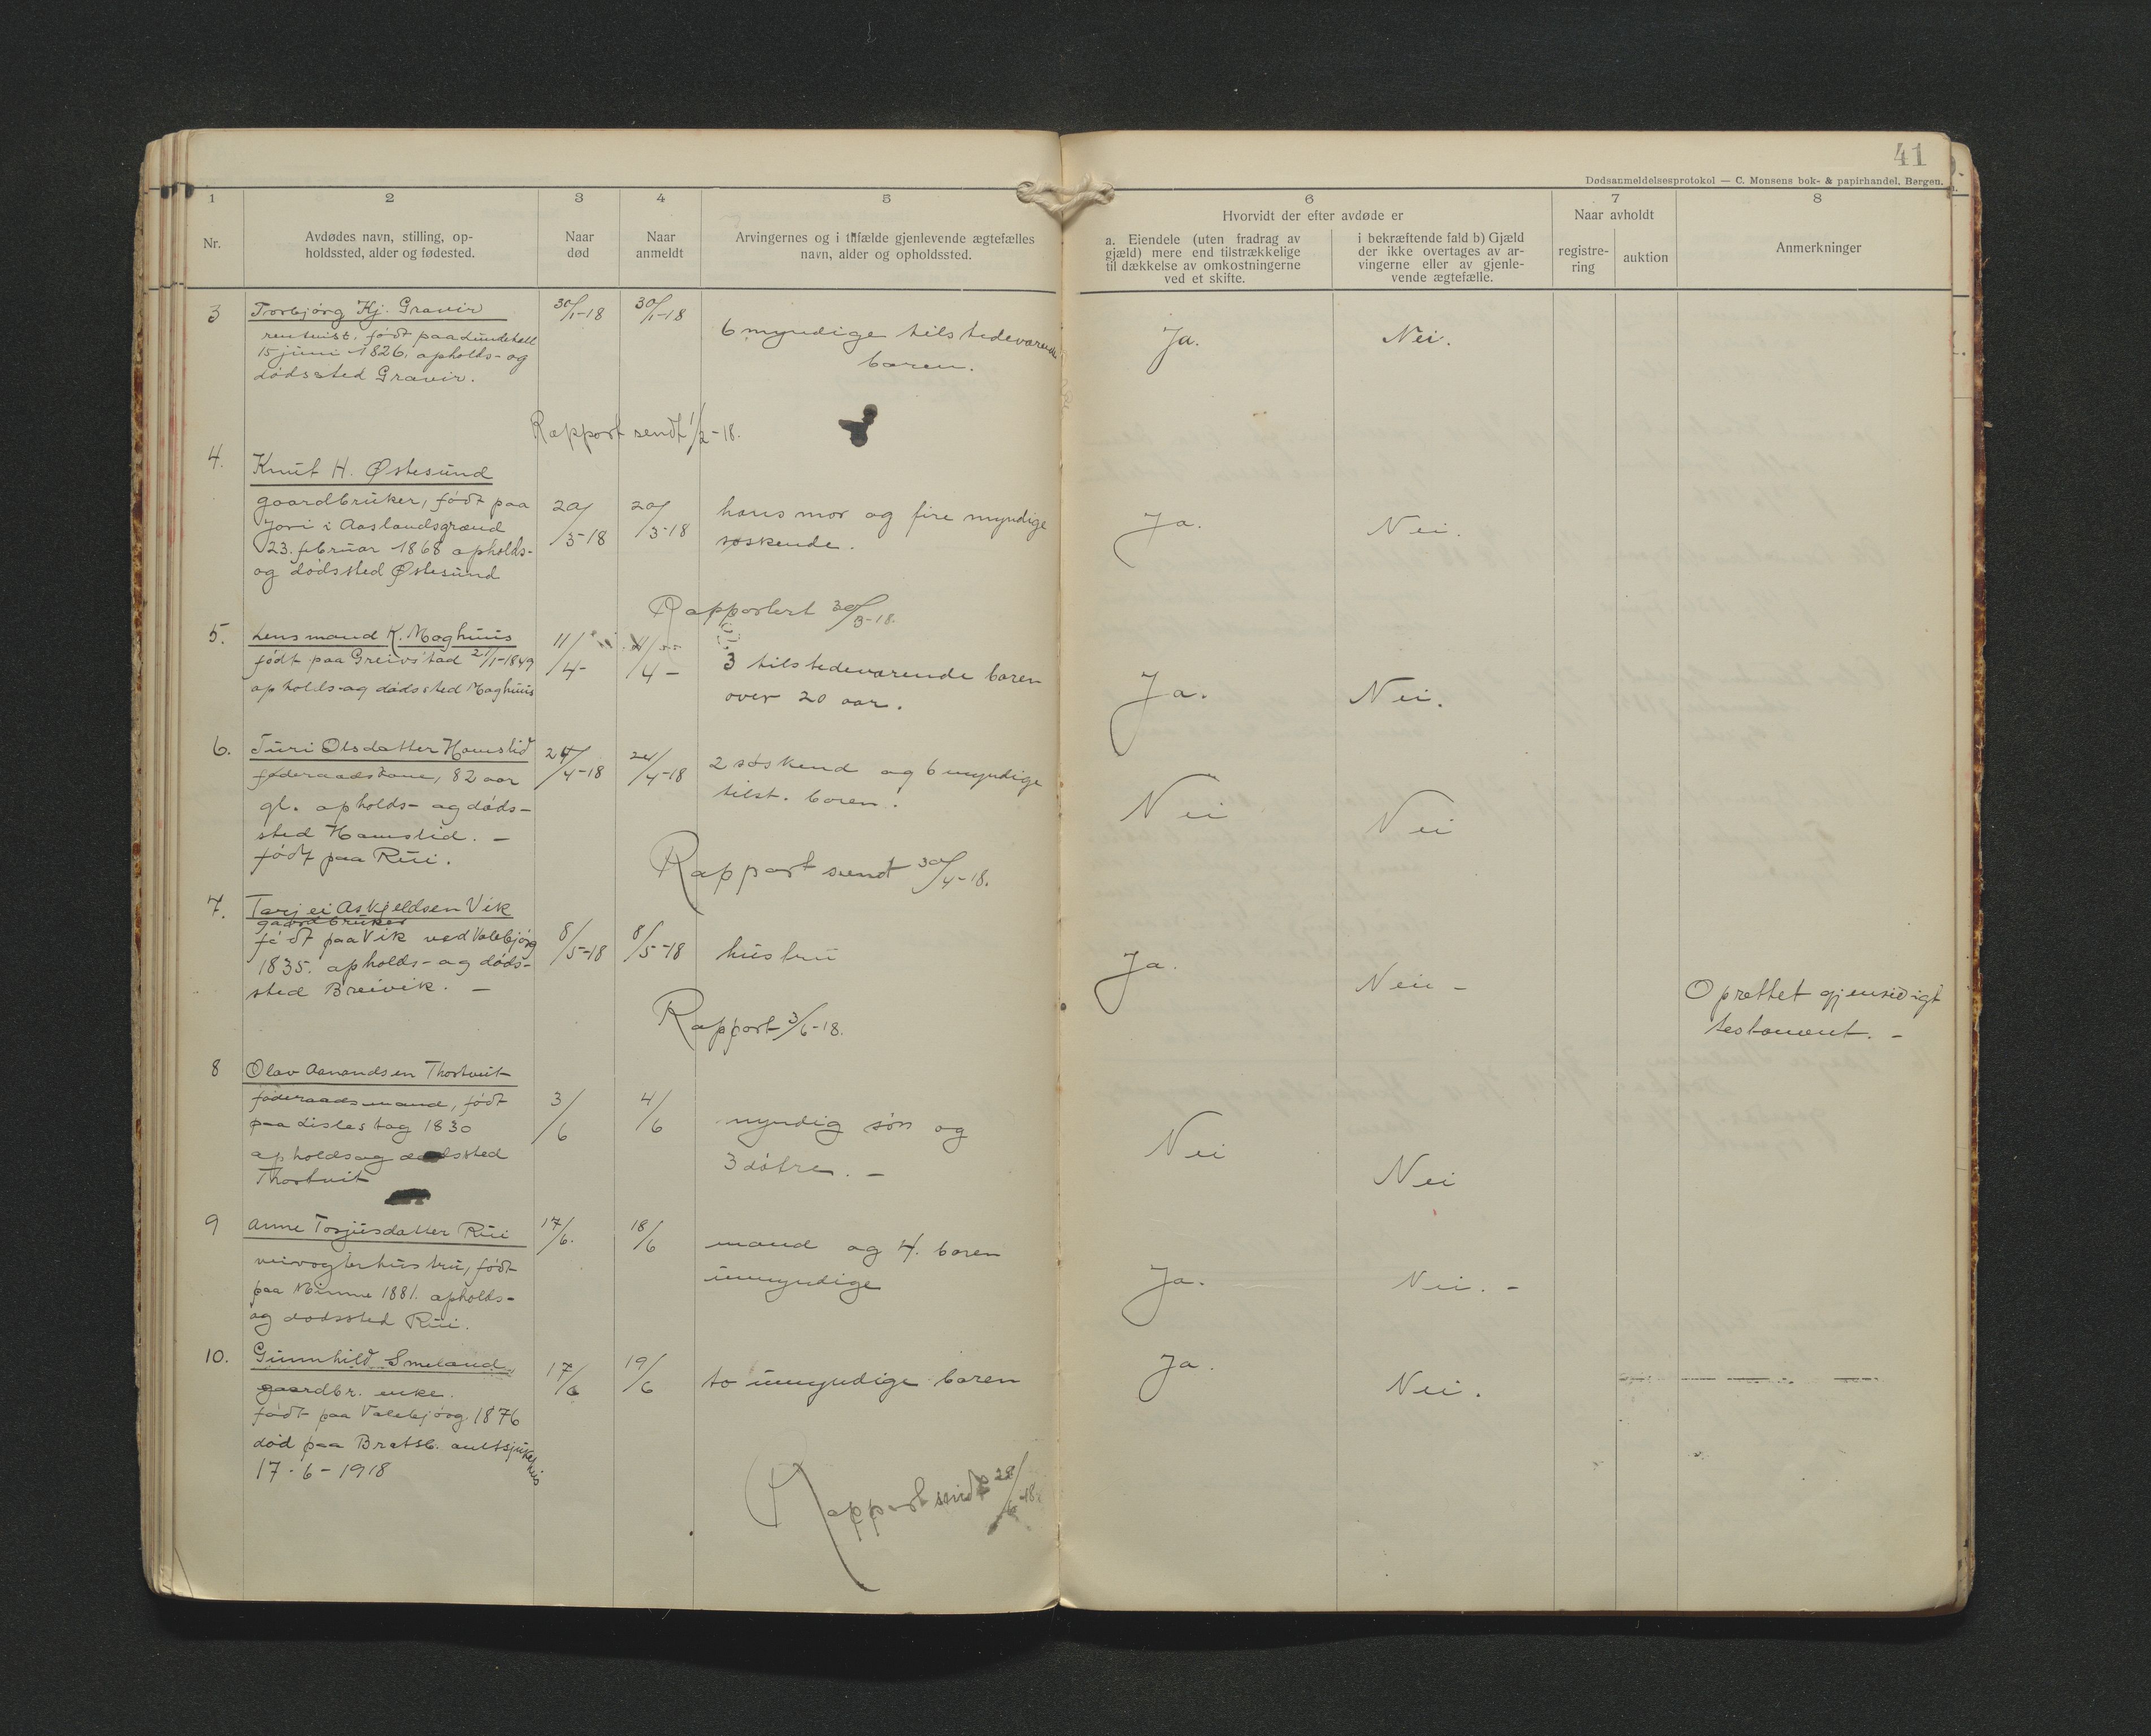 41
Dødsanmeldelsesprotokol — C. Monsens bok- & papirhandel, Bergen.
1 2 3 4 5 6 7 8
Nr.
Avdødes navn, stilling, op-
holdssted, alder og fødested.
Naar
død
Naar
anmeldt
Arvingernes og i tilfælde gjenlevende ægtefælles
navn, alder og opholdssted.
Hvorvidt der efter avdøde er
a. Eiendele (uten fradrag av
gjæld) mere end tilstrækkelige
til dækkelse av omkostningerne
ved et skifte.
i bekræftende fald b) Gjæld
der ikke overtages av ar-
vingerne eller av gjenle-
vende ægtefælle.
Naar avholdt
registre-
ring
auktion
Anmerkninger
3 Torbjørg Kj. Gravir 30/1-18 30/1-18
rentnist, født paa Lundetell
15 juni 1826, opholds- og
dødssted Gravir.
6 myndige tilstedeværende
boren.
Ja. Nei.
Rapport sendt 1/2-18.
4. Knut H. Østesund
gaardbruker, født paa
Jori i Aaslandsgrænd
23. februar 1868 opholds-
og dødssted Østesund
20/3-18 20/3-18
hans mor og fire myndige
søskende.
Ja. Nei.
Rapportert 30/3-18.
5. Lensmand K. Moghuus
født paa Greivstad 21/1-1849
opholds- og dødssted Moghuus
11/4- 11/4-
3 tilstedeværende boren
over 20 aar.
Ja. Nei.
6. Turi Olsdatter Homslid
føderaadskone, 82 aar
gl. opholds- og døds-
sted Homslid. -
født paa Rui.
24/4-18 24/4-18
2 søskend og 6 myndige
tilst. boren.
Nei Nei
Rapport sendt 30/4-18.
7. Tarjei Askjeldsen Vik
gaardbruker
født paa Vik ved Valebjørg
1835. opholds- og døds-
sted Breivik. -
8/5-18 8/5-18
hustru
Ja. Nei -
Oprettet gjensidigt
testament. -
Rapport 3/6-18.
8 Olav Aanandsen Thortveit
føderaadsmand, født
paa Lislestog 1830
opholds og dødssted
Thortvit
3/6 4/6
myndig søn og
3 døtre. -
Nei Nei
9 Anne Torjusdatter Rui
veivogterhustru, født
paa Minne 1881. opholds-
og dødssted Rui.
17/6. 18/6
mand og 4. boren
umyndige
Ja. Nei. -
10. Gunnhild Smeland
gaardbr. enke.
født paa Valebjørg 1876
død paa Bratsb. amtsjukehus
17-6-1918
17/6 19/6
to umyndige boren
Ja. Nei.
Rapport sendt 28/6-18.